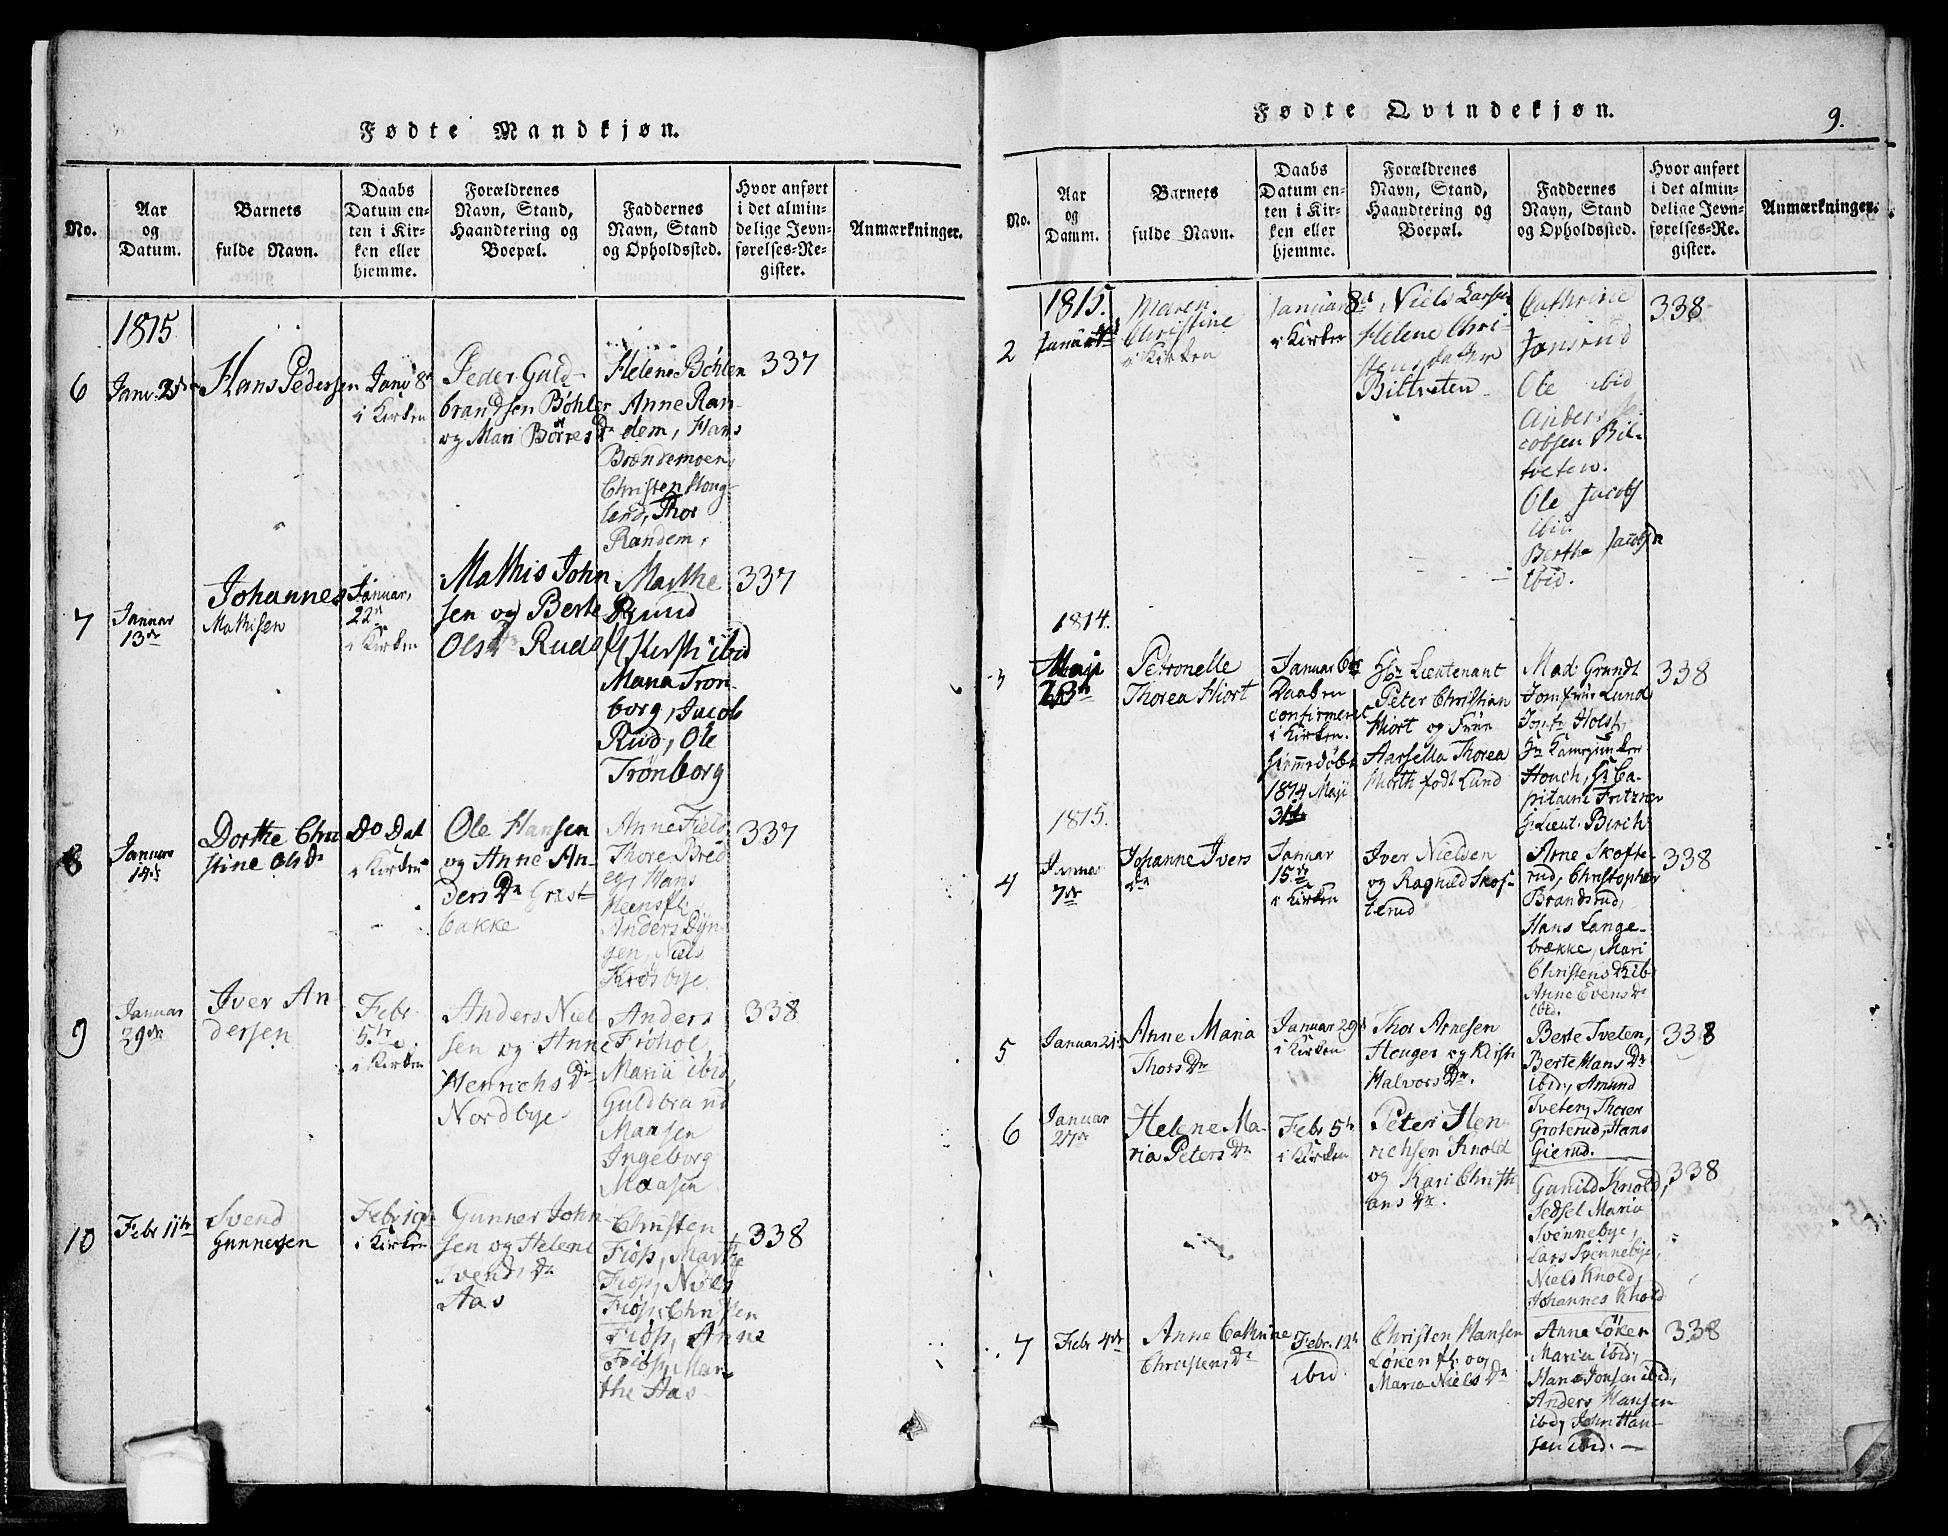 Fødte Mandkjøn.
No.
Aar
og
Datum.
Barnets
fulde Navn.
Daabs
Datum en-
ten i Kir-
ken eller
hjemme.
Forældrenes
Navn, Stand,
Haandtering og
Boepæl.
Faddernes
Navn, Stand
og Opholdssted.
Hvor anført
i det almin-
delige Jevn-
førelses-Re-
gister.
Anmærkninger.
1815
6
Janv. 2den
Hans Pedersen
Janv 8de
i Kirken
Peder Guld-
brandsen Bøhler
og Mari Børres Dr
Helene Bøhler
Anne Ran-
dem, Hans
Brændemoen,
Christen Houg-
land, Thor
Randem,
337
7
Januar
13de
Johannes
Mathisen
Januar,
22de
i Kirken
Mathis John
sen og Berte
Ols Dr Ruds
Marthe
Ruud
Kersti ibid
Maria Tron-
borg, Jacob
Rud, Ole
Trønborg
337
8
Januar
14de
Dorthe Chri
stine Ols Dr
Do Dat
i Kirken
Ole Hansen
og Anne An-
ders Dr Græst-
bakke
Anne Field
Thore Bred
eg, Hans
Anders Dyn-
gen, Niels
Krosbye
337
9
Januar
29de
Iver An
dersen
Febr
5te
i Kirken
Anders Niel
sen og Anne
Henrichs Dr
Nordbye
Anders
Frøhol
Maria ibid,
Guldbrand
Maasen
Ingeborg
Maasen
338
10
Febr 11te
Svend
Gunnersen
Febr 19de
i Kirken
Gunner John
sen og Helene
Svends Dr
Aas
Christen
Fiøs, Marthe
Fiøs, Niels
Fiøs, Christen
Fiøs, Anne
Fiøs, Mar-
the Aas
338
Fødte Qvindekjøn.
9.
No.
Aar
og
Datum.
Barnets
fulde Navn.
Daabs
Datum en-
ten i Kir-
ken eller
hjemme.
Forældrenes
Navn, Stand,
Haandtering og
Boepæl.
Faddernes
Navn, Stand
og Opholdssted.
Hvor anført
i det almin-
delige Jevn-
førelses-Re-
gister.
Anmærkninger.
1815.
2
Maren
Christine
i Kirken
Januar 8de
i Kirken
Niels Larsen
Helene Chri-
Biltveten
Cathrine
Jonsrud
Ole ibid
Anders Ja-
cobsen Bil-
tveten.
Ole Jacobs
ibid.
Berthe Jacobs Dr
ibid.
338
1814.
3
Maji
28de
Petronelle
Thorea Hiort
Januar 6te
Daaben
confirmeret
i Kirken.
hiemmedøbt
1814 Maji
31te
Hr Lieutenant
Peter Christian
Hiort og Frue
Marsella Thorea
Hiorth født Lund
Mad: Grundt
Jomfrue Lund
Jomf: Holst,
Hr Kamerjunker
Houch, Hr Ca-
pitaine Fritzner
Hr Lieut. Birch
338
1815.
4
Januar
7de
Johanne Ivers
Dr
Januar
15de
i Kirken
Iver Nielsen
og Ragnild Skof-
terud
Arne Skofte-
rud, Christopher
Brandsrud,
Hans Lange-
brække, Mari
Christens Dr ib:
Anne Evens Dr
ibid.
338
5
Januar 21de
Anne Maria
Thors Dr
Januar 29de
i Kirken
Thor Arnesen
Houger og Kirsti
Halvors Dr.
Berte Tveten,
Berte Hans Dr
ibid, Amund
Tveten, Thorer
Groterud, Hans
Gierud.
338
6
Januar
27de
Helene Ma-
ria Peters Dr
Febr 5te
i Kirken
Peter Hen
richsen Knold
og Kari Christi
ans Dr.
Gunild Knold,
Sedsel Maria
Svennebye,
Lars Svennebye,
Niels Knold,
Johannes Knold
338
7
Febr 4de
Anne Cathrine
Christens Dr
Febr. 12te
ibid.
Christen Hansen
Løken og
Maria Niels Dr
Anne Løken
Maria ibid,
Hans Jonsen ibid,
Anders Hansen
ibid, John Han-
sen ibid.
338